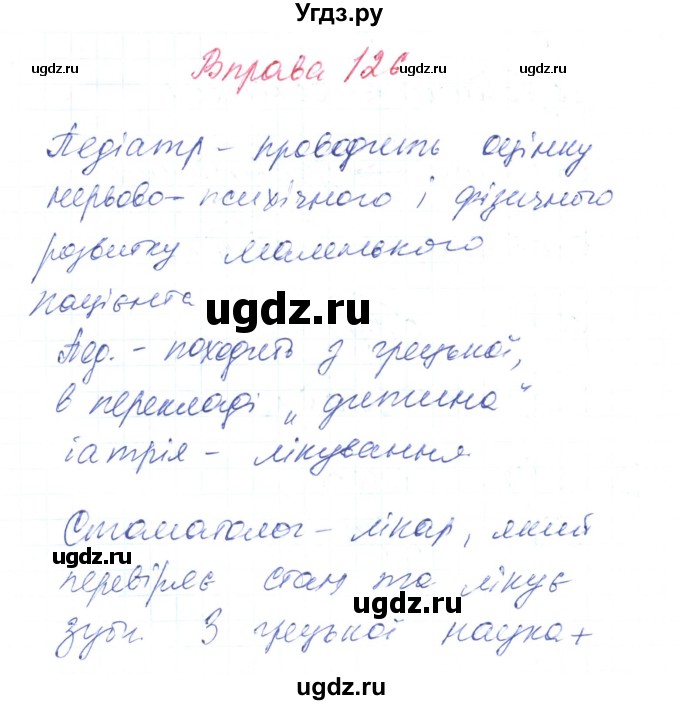 Угдз.ру
ugdz.ru ugdz.ru ugdz.ru
Вправа 126
Педіатр - проводить оцінку
нервово-психічного і фізичного
розвитку маленького
пацієнта
ugdz.ru
Пед. - походить з грецької,
в перекладі „дитина"
іатрія - лікування
Стоматолог - лікар, який
ugdz.ru
перевіряє стан та лікує
ugdz.ru
зуби. З грецької наука +
ugdz.ru
ugdz.ru